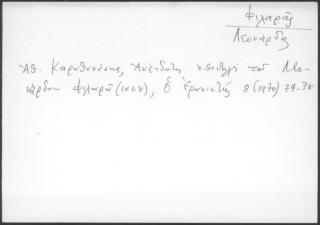 Φιλαρᾶς
Λεονάρδος
Ἀθ. Καραθανάσης, Ἀνέκδοτη ἐπιστολὴ τοῦ Λεο-
νάρδου Φιλαρᾶ (1668), Ὁ Ἐρανιστής 8 (1970) 74-78